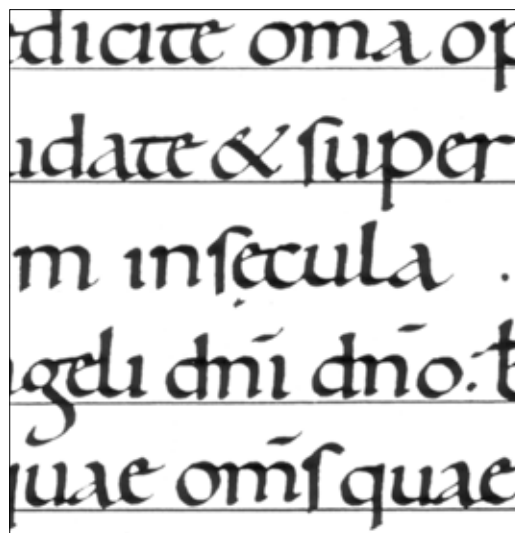 edicite oma op
udate & ſuper
m inſęcula .
ngeli dnī dnō:
quae om̄ſ quae